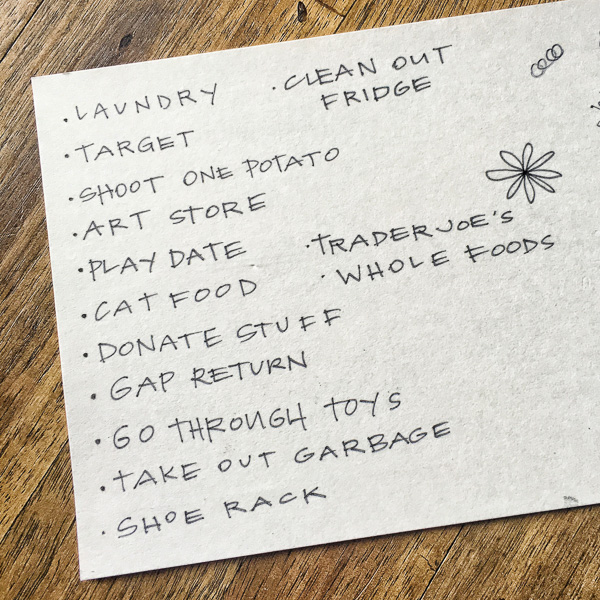 · LAUNDRY
· CLEAN OUT
FRIDGE
· TARGET
· SHOOT ONE POTATO
· ART STORE
· PLAY DATE
· TRADER JOE'S
· WHOLE FOODS
· CAT FOOD
· DONATE STUFF
· GAP RETURN
· GO THROUGH TOYS
· TAKE OUT GARBAGE
· SHOE RACK